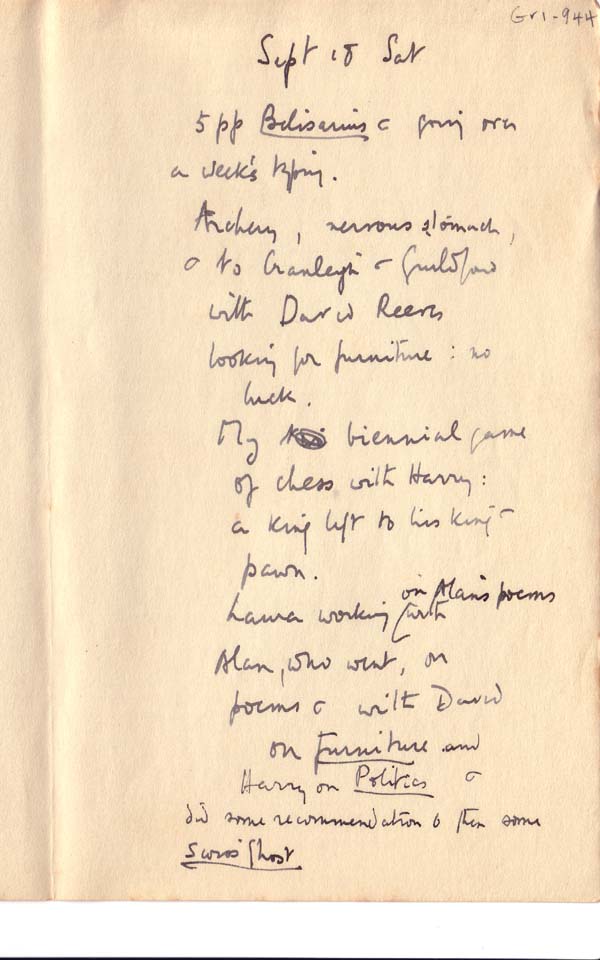 Gr1-944
Sept 18 Sat
5 pp Belisarius & going over
a week's typing.
Archery, nervous stomach,
& to Cranleigh & Guildford
with David Reeves
looking for furniture : no
luck.
My biennial game
of chess with Harry:
a king left to his king &
pawn.
on Alan's poems
Laura working with
Alan, who went, on
poems & with David
on Furniture and
Harry on Politics &
did some recommendation & then some
Swiss Ghost